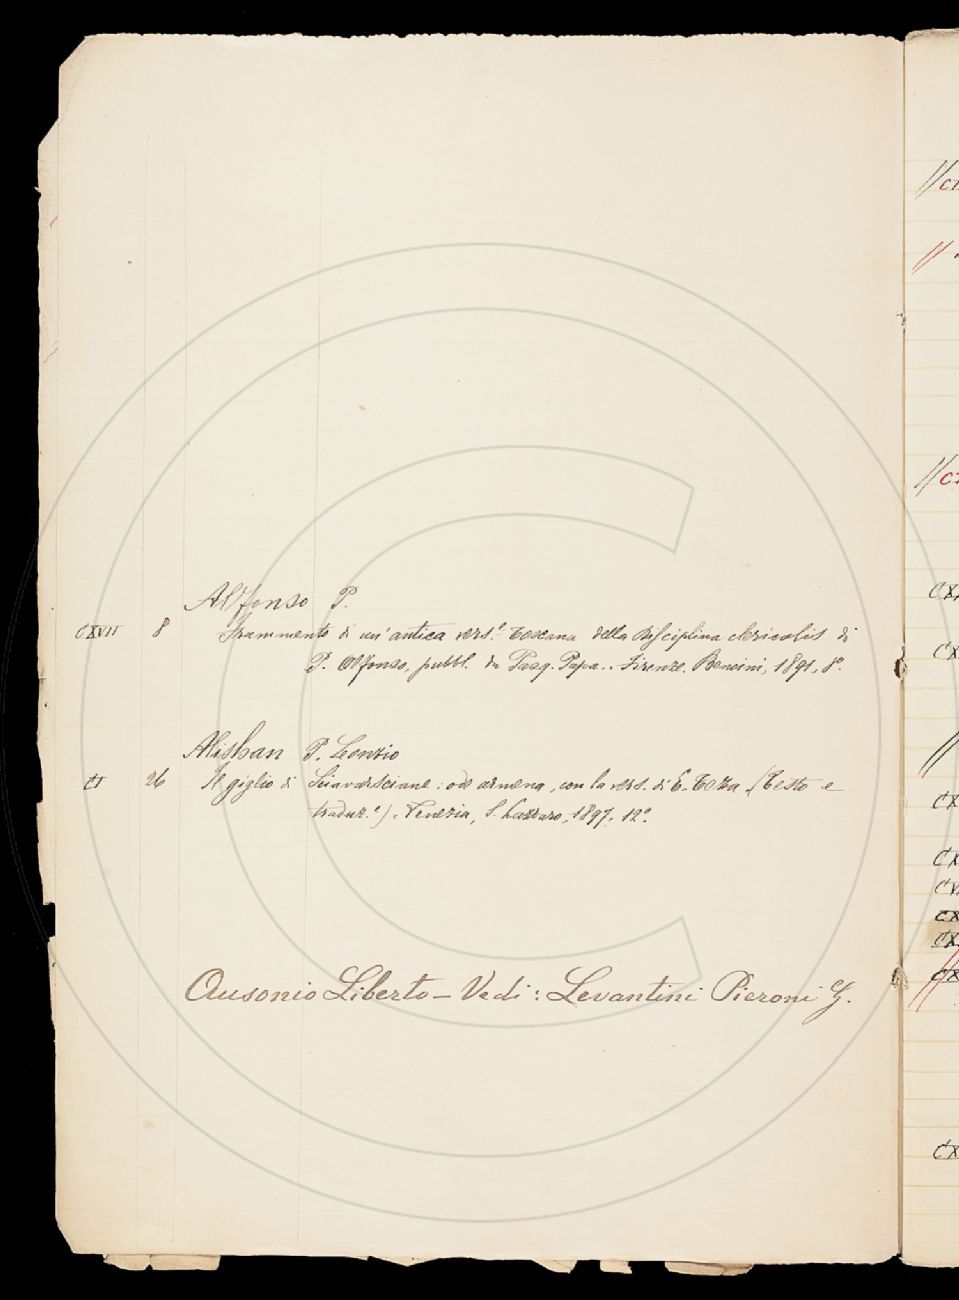 Alfonso P.
CXVII 8 Frammento di un' antica vers.e toscana della Disciplina clericalis di
P. Alfonso, pubbl. da Pasq. Papa. Firenze. Bencini, 1891, 8°.
Alishan P. Leonzio
CI 26 Il giglio di Sciavarsciane: ode armena, con la vers. di E. Teza (Testo e
traduz.e). Venezia, S. Lazzaro, 1897. 12°.
Ausonio Liberto - Vedi: Levantini Pieroni G.